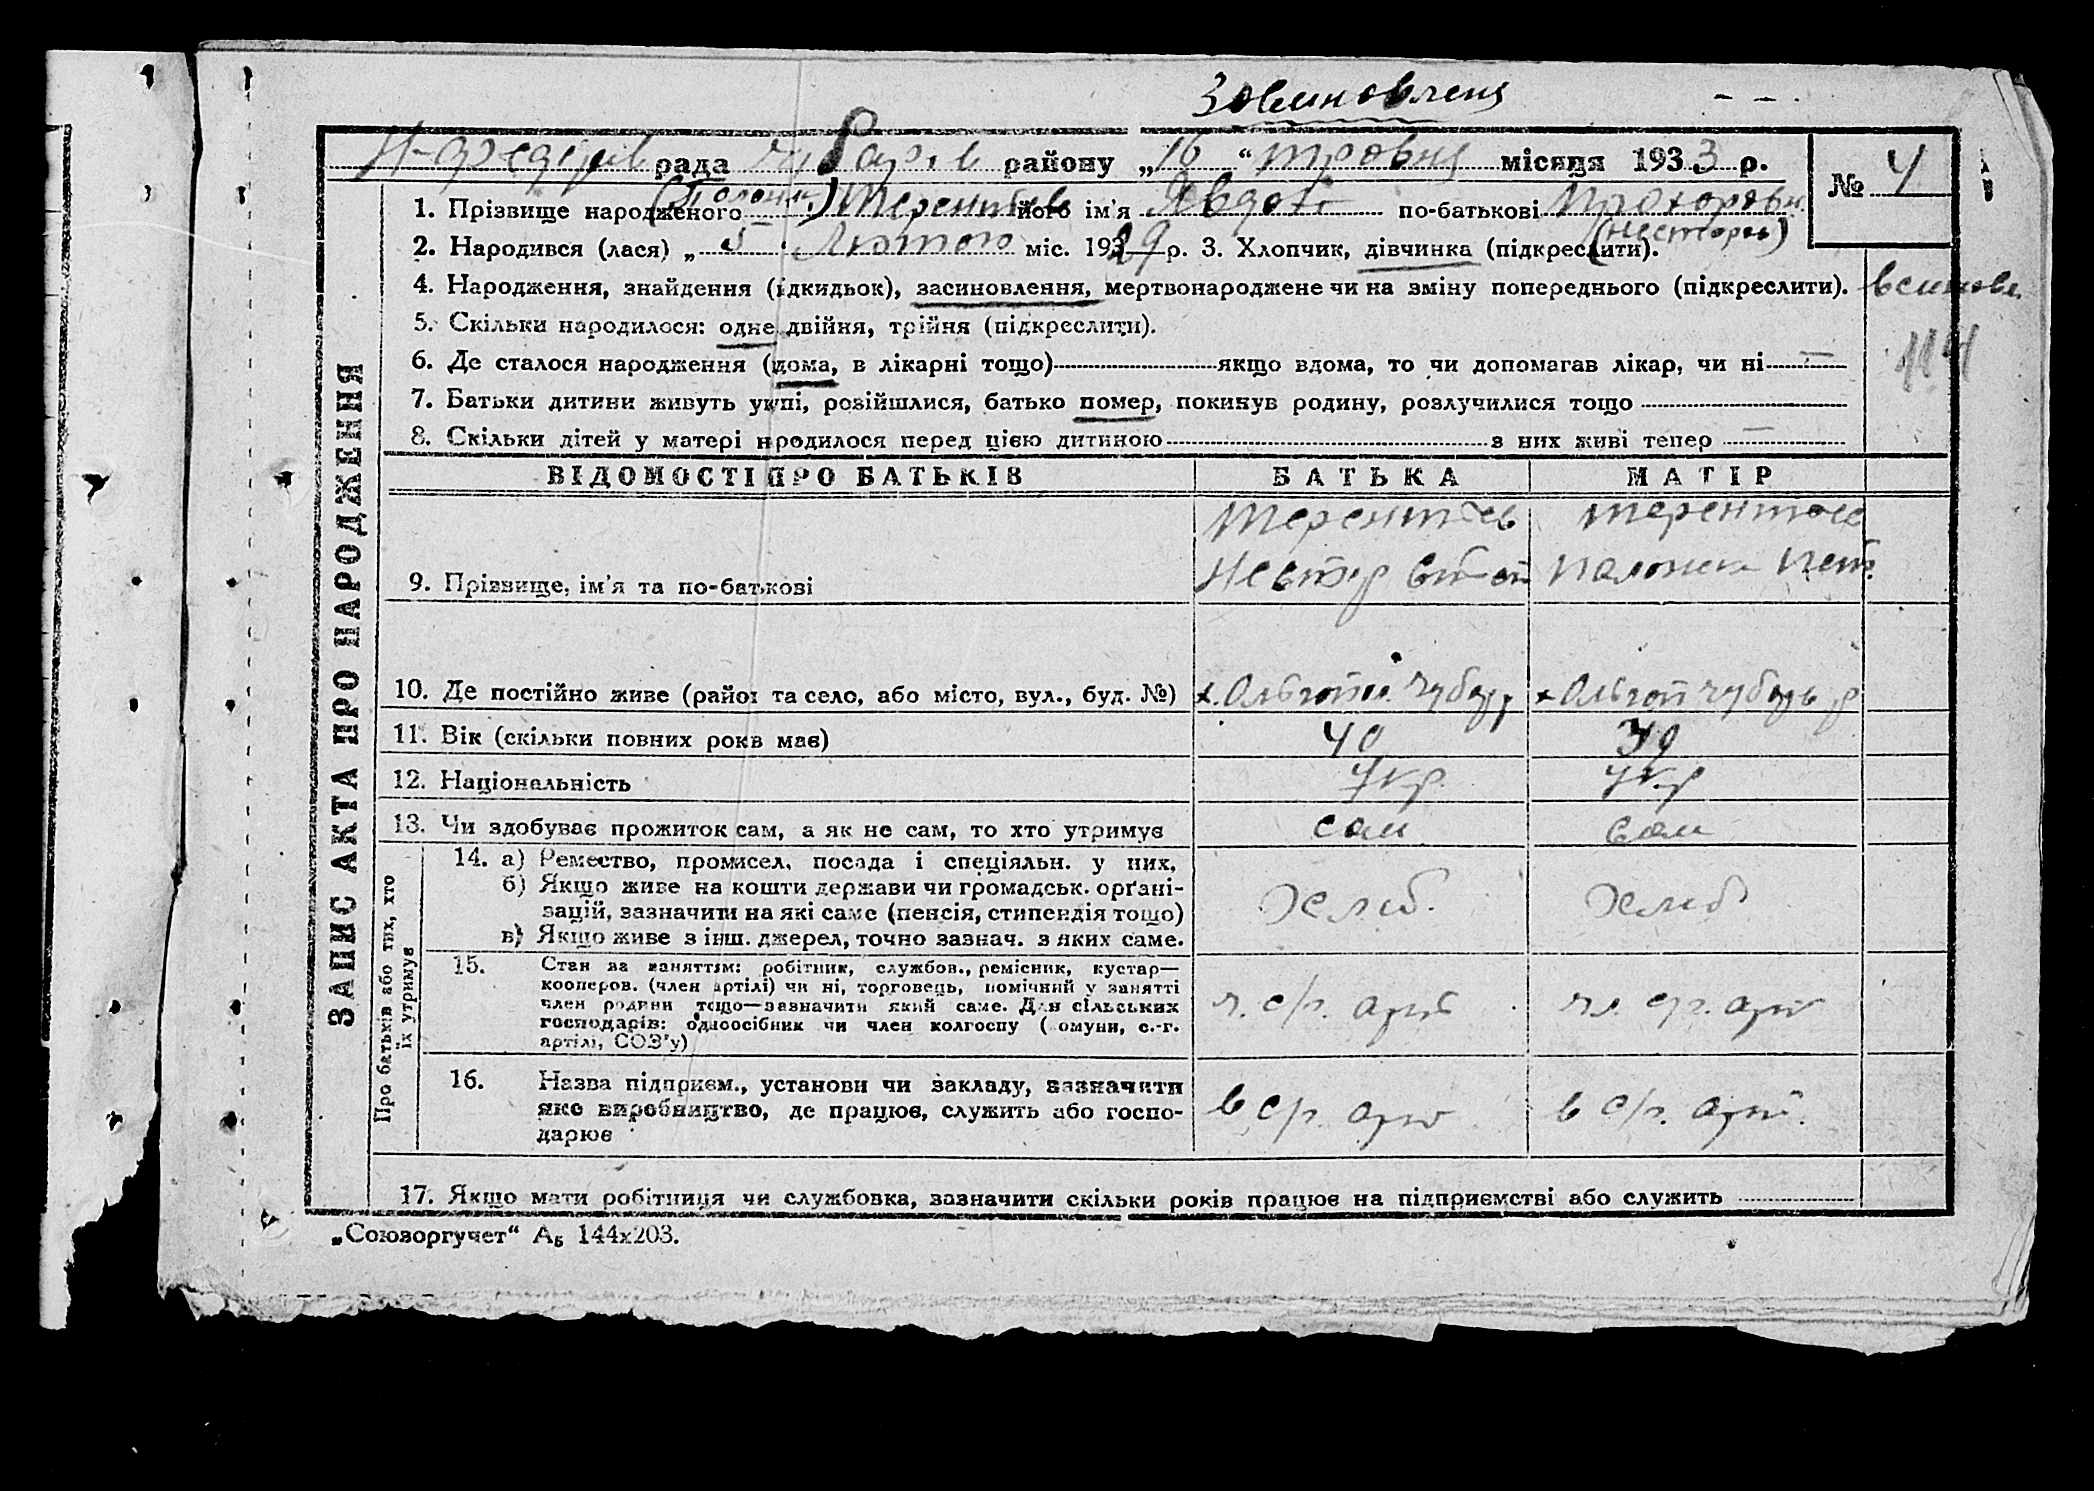 Засиновленя
рада района „16“ травня місяця 1933 р.
№ 4
1. Прізвище народженого Терентьєв його ім’я Явдоха по-батькові Прохоровн.
(Несторов)
2. Народився (лася) „5 Лютого міс. 1929 р. 3. Хлопчик, дівчинка (підкреслити).
4. Народження, знайдення (підкидьок), засиновлення, мертвонароджене чи на зміну попереднього (підкреслити).
5. Скільки народилося: одне двійня, трійня (підкреслити).
6. Де сталося народження (дома, в лікарні тощо) якщо вдома, то чи допомагав лікар, чи ні —
7. Батьки дитини живуть укупі, розійшлися, батько помер, покинув родину, розлучилися тощо
8. Скільки дітей у матері народилося перед цією дитиною з них живі тепер —
ЗАПИС АКТА ПРО НАРОДЖЕННЯ
ВІДОМОСТІ ПРО БАТЬКІВ БАТЬКА МАТІР
Терентьєв Терентьєв
9. Прізвище, ім’я та по-батькові Нестор
10. Де постійно живе (район та село, або місто, вул., буд. №)
11. Вік (скільки повних років має) 40 39
12. Національність Укр. Укр
13. Чи здобуває прожиток сам, а як не сам, то хто утримує сам сам
Про батьків або тих, хто
їх утримує
14. а) Ремество, промисел, посада і спеціяльн. у них.
б) Якщо живе на кошти держави чи громадськ. орґані-
зацій, зазначити на які саме (пенсія, стипендія тощо) Хліб. Хліб
в) Якщо живе з інш. джерел, точно зазнач. з яких саме.
15. Стан за заняттям: робітник, службов., ремісник, кустар—
кооперов. (член артілі) чи ні, торговець, помічний у занятті
член родини тощо—зазначити який саме. Для сільських
господарів: одноосібник чи член колгоспу (комуни, с.-г.
артілі, СОЗ’у)
ч. с/г. арт чл. с/г. арт
16. Назва підприєм., установи чи закладу, зазначити
яке виробництво, де працює, служить або госпо-
дарює
в с/г. арт в с/г. арт.
17. Якщо мати робітниця чи службовка, зазначити скільки років працює на підприємстві або служить
„Союзоргучет“ А₅ 144х203.